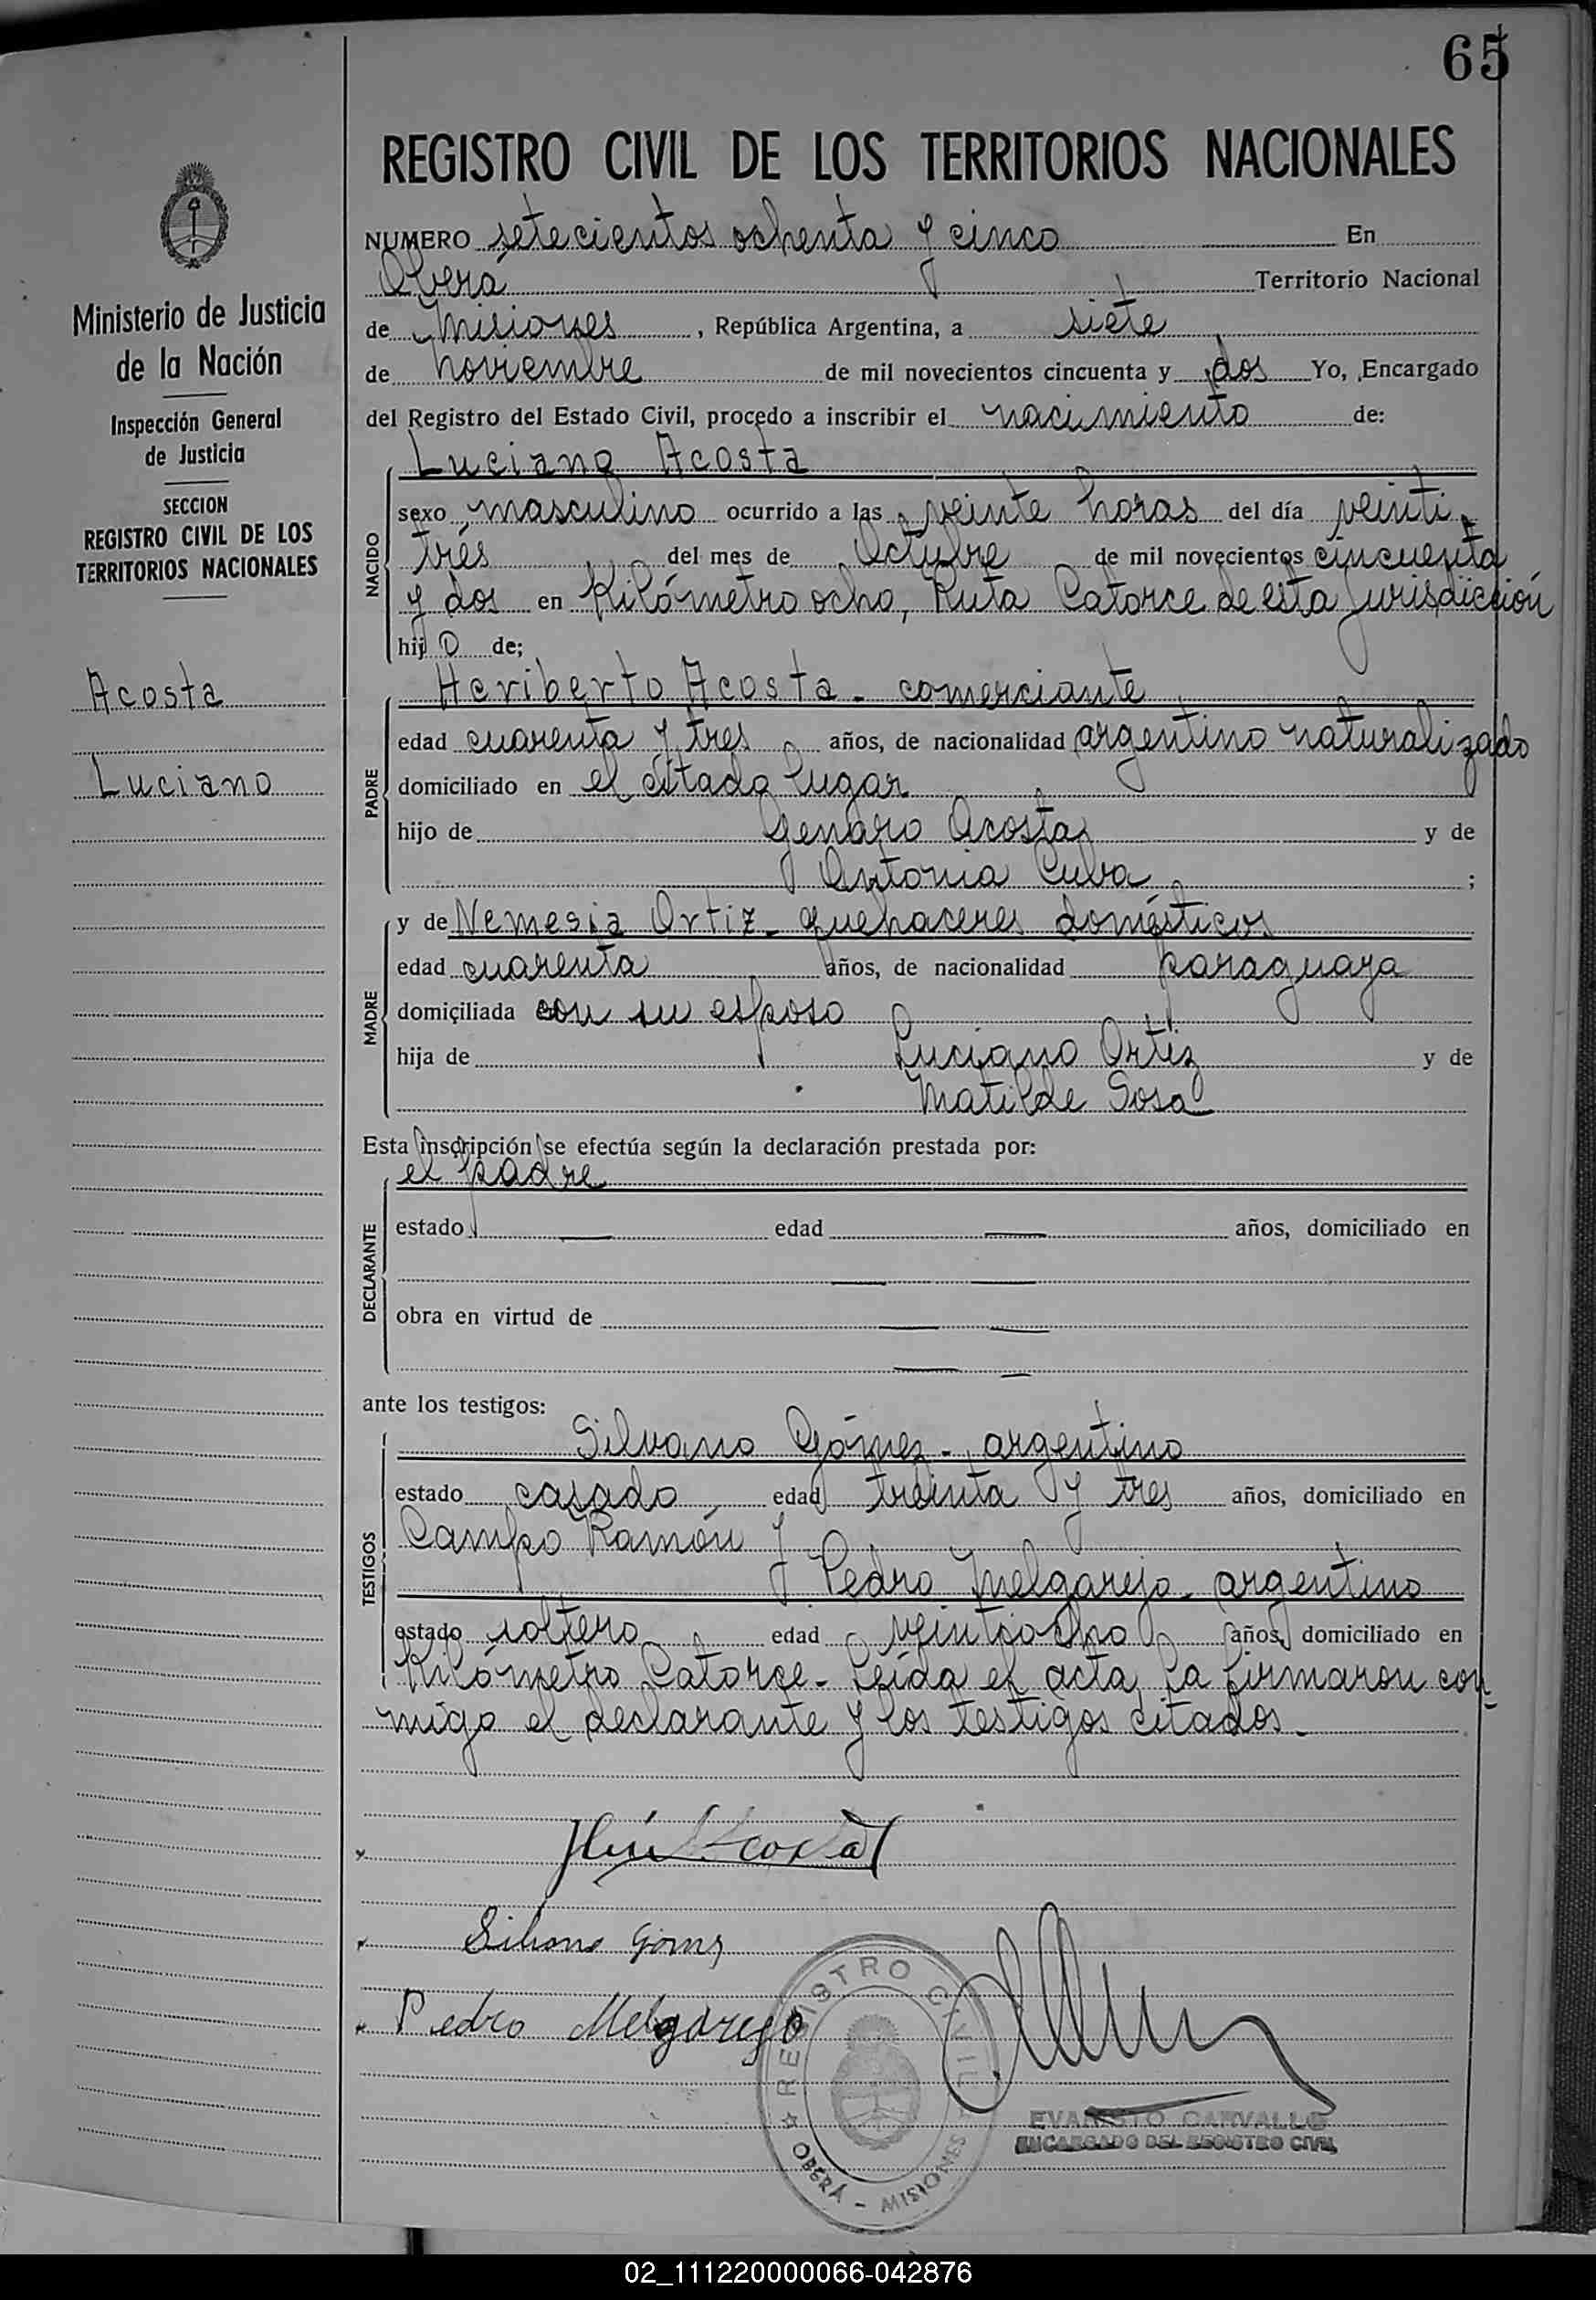 65
REGISTRO CIVIL DE LOS TERRITORIOS NACIONALES
Ministerio de Justicia
de la Nación
Inspección General
de Justicia
SECCION
REGISTRO CIVIL DE LOS
TERRITORIOS NACIONALES
Acosta
Luciano
NUMERO setecientos ochenta y cinco En
Oberá Territorio Nacional
de Misiones, República Argentina, a siete
de noviembre de mil novecientos cincuenta y dos Yo, Encargado
del Registro del Estado Civil, procedo a inscribir el nacimiento de:
NACIDO
Luciano Acosta
sexo masculino ocurrido a las veinte horas del día veinti
trés del mes de Octubre de mil novecientos cincuenta
y dos en Kilómetro ocho, Ruta Catorce de esta jurisdicción
hijo de;
PADRE
Heriberto Acosta - comerciante
edad cuarenta y tres años, de nacionalidad argentino naturalizado
domiciliado en el citado lugar
hijo de Genaro Acosta y de
Antonia Cuba ;
MADRE
y de Nemesia Ortiz - quehaceres domésticos
edad cuarenta años, de nacionalidad paraguaya
domiciliada con su esposo
hija de Luciano Ortiz y de
Matilde Sosa
Esta inscripción se efectúa según la declaración prestada por:
DECLARANTE
el padre
estado — edad — años, domiciliado en
— —
obra en virtud de — —
— —
ante los testigos:
TESTIGOS
Silvano Gómez - argentino
estado casado edad treinta y tres años, domiciliado en
Campo Ramón y
Pedro Melgarejo - argentino
estado soltero edad veintiocho años, domiciliado en
Kilómetro Catorce - Leída el acta, la firmaron con
migo el declarante y los testigos citados -
Acosta
Silvano Gomez
Pedro Melgarejo
REGISTRO CIVIL
OBERÁ - MISIONES
EVARISTO CARVALLO
ENCARGADO DEL REGISTRO CIVIL
02_111220000066-042876